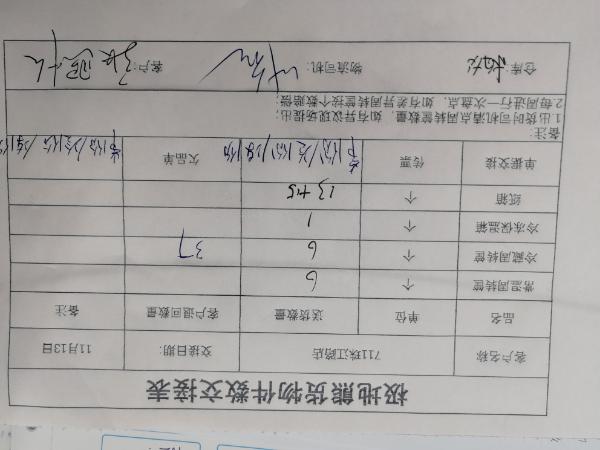 极地熊货物件数交接表
客户名称 711珠江路店 交接日期: 11月13日
品名 单位 送货数量 客户退回数量 备注
常温周转筐 个 6
冷藏周转筐 个 6 37
冷冻保温箱 个 1
纸箱 个 13+5
单据交接 传票 欠品单
备注:
1.到货时司机清点周转筐数量，如有异议现场提出;
2.每周进行一次盘点，如有差异周转筐按个数赔偿;
仓库: 物流司机: 客户: